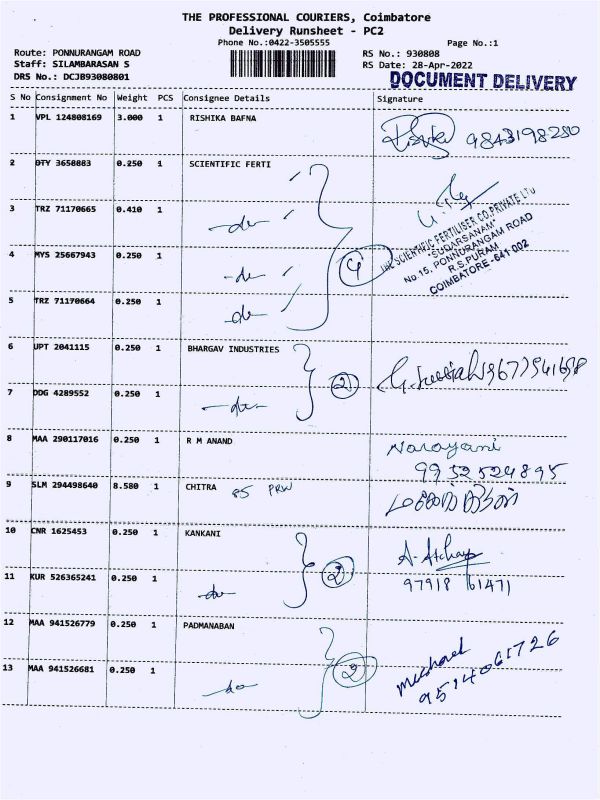 THE PROFESSIONAL COURIERS, Coimbatore
Delivery Runsheet - PC2
Phone No.:0422-3505555
Page No.:1
Route: PONNURANGAM ROAD
RS No.: 930808
Staff: SILAMBARASAN S
RS Date: 28-Apr-2022
DRS No.: DCJB93080801
DOCUMENT DELIVERY
S No Consignment No Weight PCS Consignee Details Signature
1 VPL 124808169 3.000 1 RISHIKA BAFNA
9843198280
2 DTY 3658883 0.250 1 SCIENTIFIC FERTI
3 TRZ 71170665 0.410 1 -do-
4 MYS 25667943 0.250 1 -do-
4
THE SCIENTIFIC FERTILISER CO.PRIVATE LTD
"SUDARSANAM"
No.15, PONNURANGAM ROAD
R.S.PURAM
COIMBATORE-641 002
5 TRZ 71170664 0.250 1 -do-
6 UPT 2041115 0.250 1 BHARGAV INDUSTRIES
2
7 DDG 4289552 0.250 1 -do-
8 MAA 290117016 0.250 1 R M ANAND Narayani
9952524895
9 SLM 294498640 8.580 1 CHITRA 85 PRW
10 CNR 1625453 0.250 1 KANKANI
2
11 KUR 526365241 0.250 1 -do- 97918 61471
12 MAA 941526779 0.250 1 PADMANABAN
2
13 MAA 941526681 0.250 1 -do- 9514061726